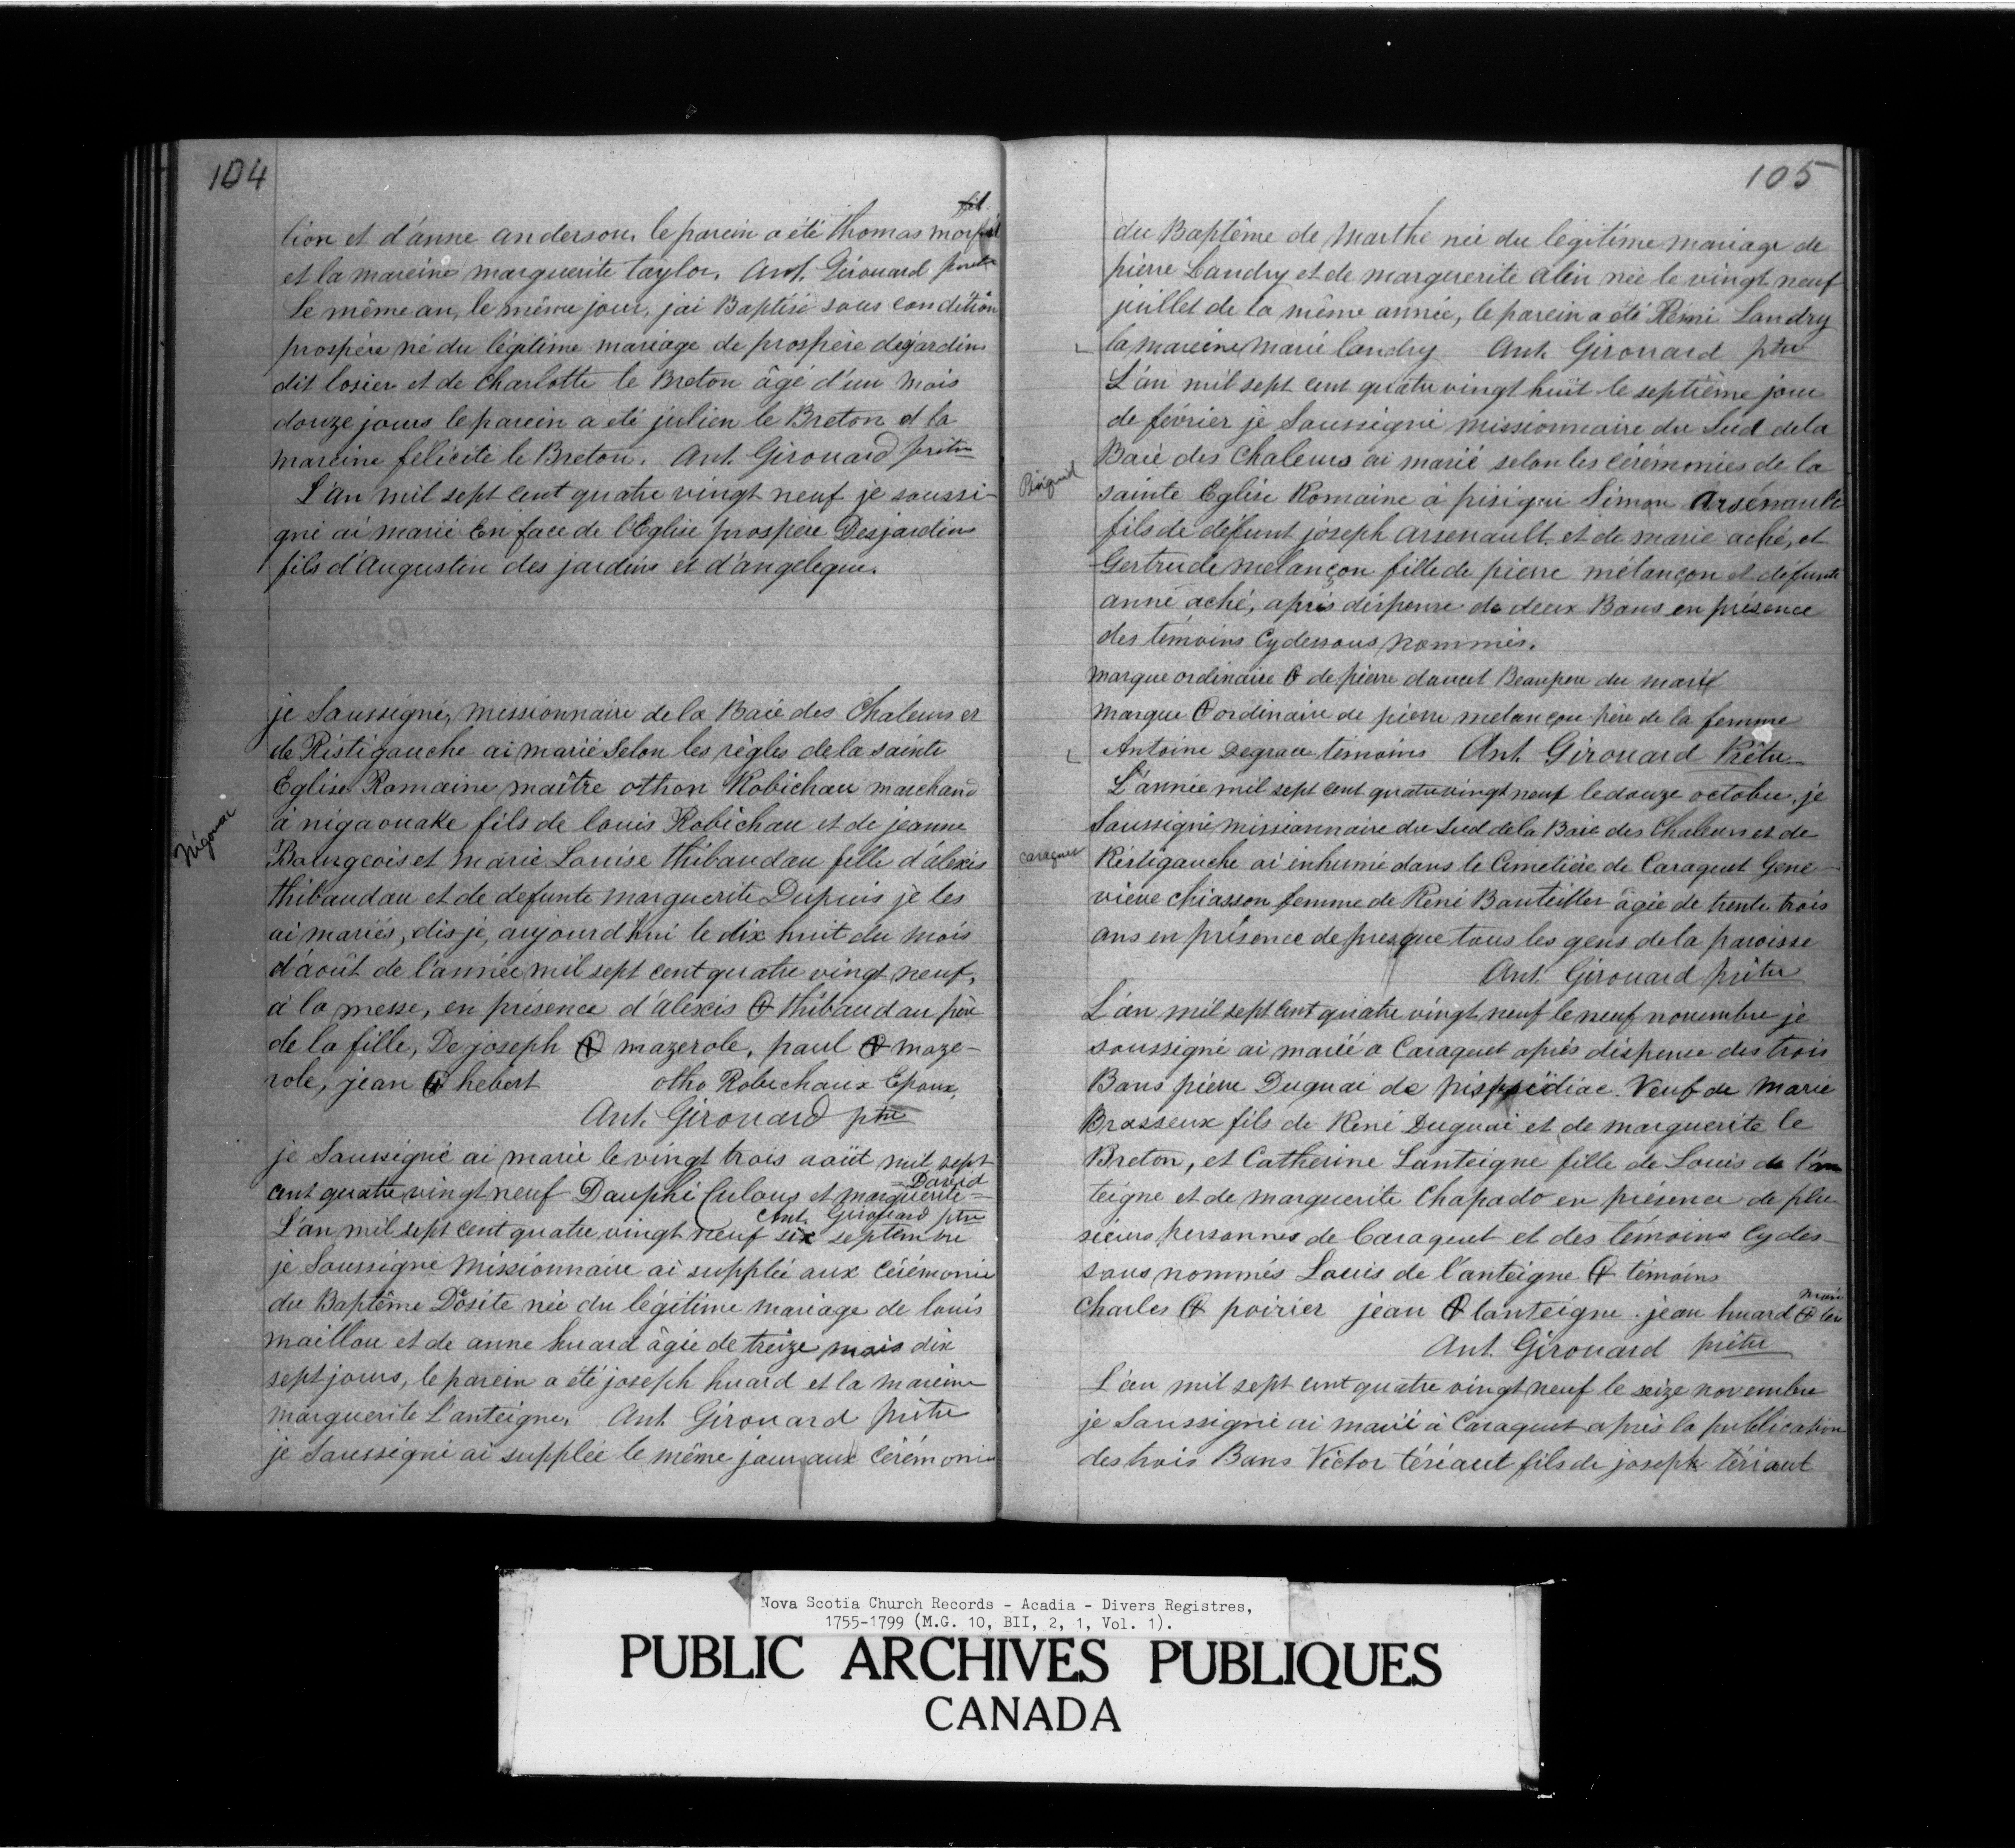 104
lion et d'anne anderson, le parein a été thomas
et la mareine marguerite taylor, Ant. Girouard
Le même an, le même jour, j'ai Baptisé sous condition
prospère né du légitime mariage de prospère degardins
dit losier et de Charlotte le Breton âgé d'un mois
douze jours le parein a été julien le Breton et la
mareine felicité le Breton. Ant. Girouard prêtre
L'an mil sept cent quatre vingt neuf je soussi-
gné ai marié En face de l'Eglise prospère Desjardins
fils d'Augustin des jardins et d'angeleque.
je Soussigné, missionnaire de la Baie des Chaleurs et
de Ristigauche ai marié Selon les règles de la sainte
Eglise Romaine maître othon Robichau marchand
Négouac
à nigaouake fils de louis Robichau et de jeanne
Bourgeois et marie Louise thibaudau fille d'aléxis
thibaudau et de defunte marguerite Dupuis je les
ai mariés, dis je, aujourd'hui le dix huit du mois
d'août de l'année mil sept cent quatre vingt neuf,
à la messe, en présence d'alexis thibaudau père
de la fille, De joseph mazerole, paul maze-
role, jean hebert otho Robichaux Epoux,
Ant. Girouard ptre
je Soussigné ai marié le vingt trois août mil sept
= David
cent quatre vingt neuf Dauphi Culous et marguerite =
Ant. Girouard ptre
L'an mil sept cent quatre vingt neuf six septembre
je Soussigné Missionnaire ai supplée aux Cérémonie
du Baptême Dosite née du légitime mariage de louis
maillou et de anne huard âgée de treize mois dix
sept jours, le parein a été joseph huard et la mareine
marguerite L'anteigne. Ant. Girouard prêtre
je Soussigné ai supplée le même jour aux Cérémonie
105
du Baptême de Marthe née du légitime mariage de
pierre Landry et de marguerite alin née le vingt neuf
juillet de la même année, le parein a été Rémi Landry
la mareine marie landry Ant. Girouard ptre
L'an mil sept cent quatre vingt huit le septième jour
de février je Soussigné missionnaire du Sud de la
Baie des Chaleurs ai marié selon les cérémonies de la
sainte Eglise Romaine à pisigui Simon Arsénault
fils de défunt joseph arsenault et de marie aché, et
Gertrude melançon fille de pierre mélançon et défunte
anne aché, après dispense de deux Bans en présence
des témoins Cydessous nommés.
marque ordinaire de pierre doucet Beaupere du marié
marque ordinaire de pierre melançon père de la femme
Antoine Degrau témoins Ant. Girouard Prêtre
L'année mil sept cent quatrevingt neuf le douze octobre, je
Soussigné missionnaire du Sud de la Baie des Chaleurs et de
caraquet
Réstigauche ai inhumé dans le Cimetière de Caraquet Gene-
viève Chiasson femme de René Bauteiller âgée de trente trois
ans en présence de presque tous les gens de la paroisse
Ant. Girouard prêtre
L'an mil sept cent quatre vingt neuf le neuf novembre je
soussigné ai marié a Caraquet après dispense des trois
Bans pierre Duguai de Veuf de Marie
Brasseux fils de René Duguai et de marguerite le
Breton, et Catherine Lanteigne fille de Louis de l'an
teigne et de marguerite Chapado en présence de plu
sieurs personnes de Caraquet et des témoins Cydes-
sous nommés Louis de l'anteigne témoins
Charles poirier jean lanteigne . jean huard
Ant. Girouard prêtre
L'an mil sept cent quatre vingt neuf le seize novembre
je Soussigné ai marié à Caraquet après la publication
des trois Bans Victor tériaut fils de joseph tériaut
Nova Scotia Church Records - Acadia - Divers Registres,
1755-1799 (M.G. 10, BII, 2, 1, Vol. 1).
PUBLIC ARCHIVES PUBLIQUES
CANADA